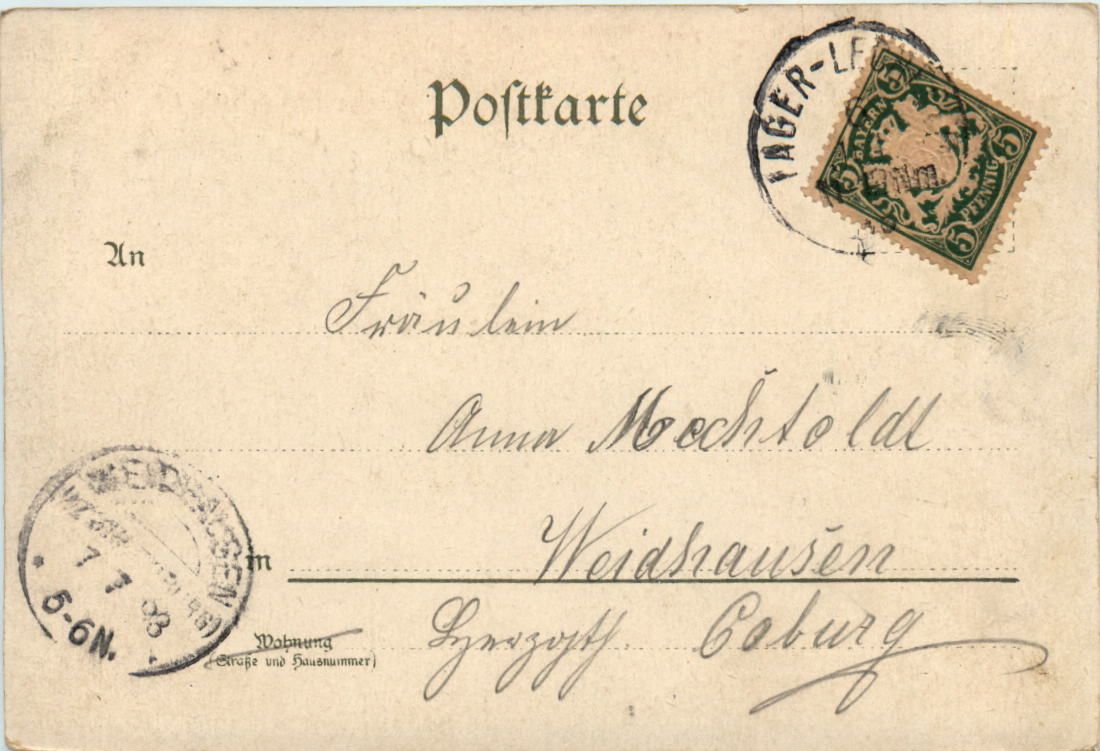 Postkarte
LAGER-LECH
5
BAYERN
5
5
PFENNIG
5
Nm.
An
Fräulein
Anna Mechtoldt
in Weidhausen
Herzogth. Coburg
Wohnung
(Straße und Hausnummer)
WEIDHAUSEN
7 7 03
5-6N.